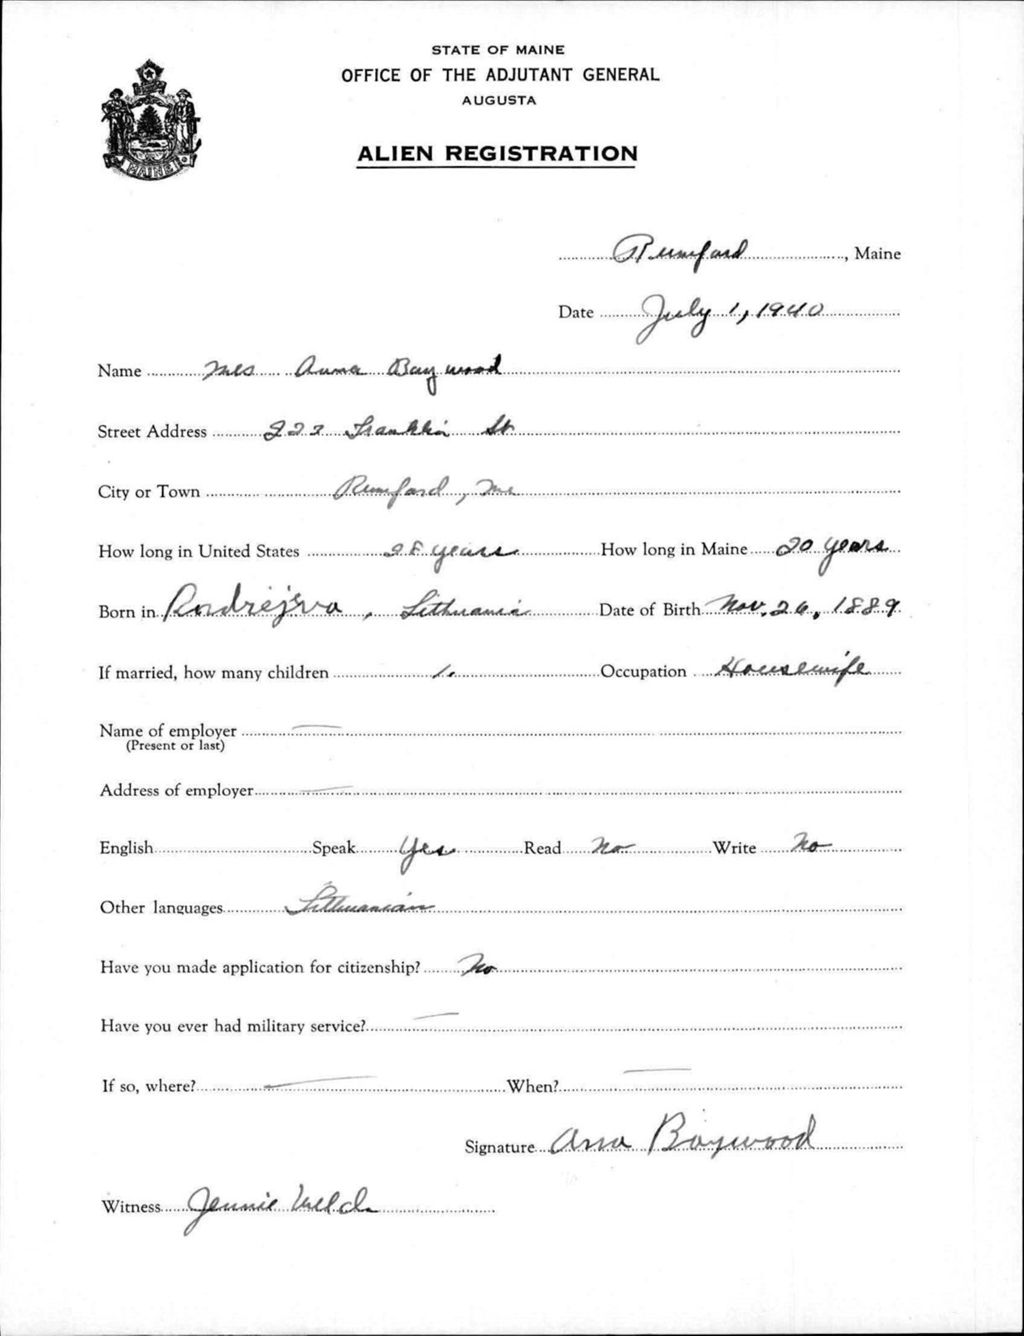 STATE OF MAINE
OFFICE OF THE ADJUTANT GENERAL
AUGUSTA
ALIEN REGISTRATION
MAINE
Rumford, Maine
Date July 1, 1940
Name Mrs Anna Baywood
Street Address Franklin St
City or Town Rumford, Me
How long in United States 28 years How long in Maine 20 years
Born in Lithuania Date of Birth Nov. 26, 1889
If married, how many children 1. Occupation Housewife
Name of employer —
(Present or last)
Address of employer —
English Speak Yes Read No Write No
Other languages Lithuanian
Have you made application for citizenship? No
Have you ever had military service? —
If so, where? — When? —
Signature Anna Baywood
Witness Jennie Welch